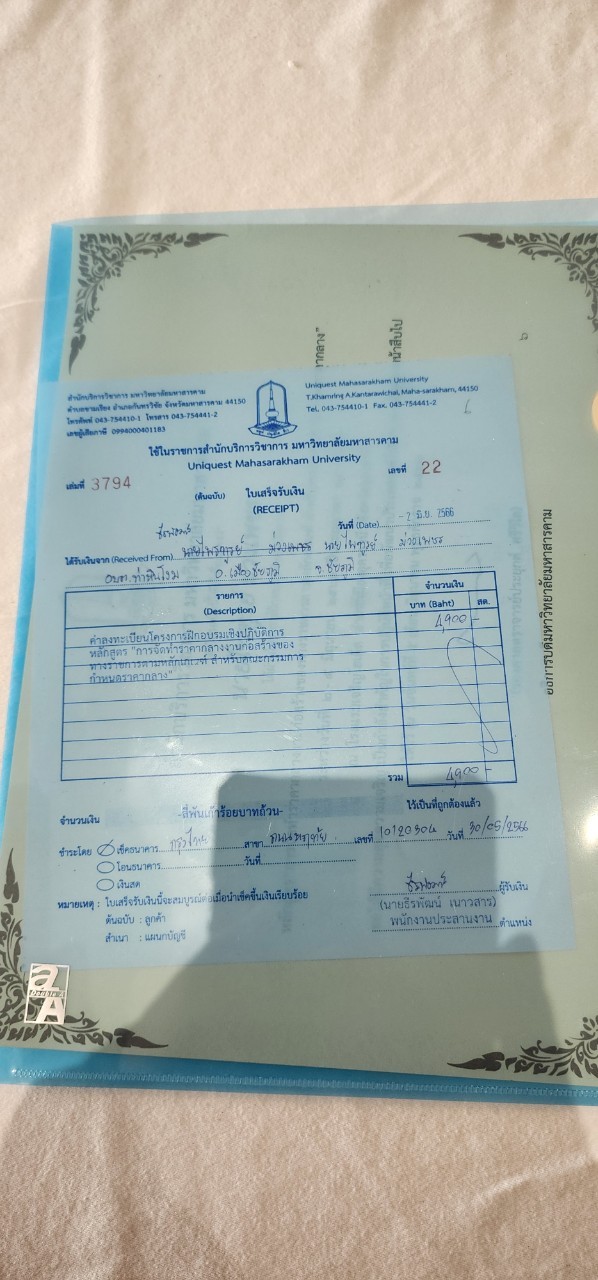 สำนักบริการวิชาการ มหาวิทยาลัยมหาสารคาม
ตำบลขามเรียง อำเภอกันทรวิชัย จังหวัดมหาสารคาม 44150
โทรศัพท์ 043-754410-1 โทรสาร 043-754441-2
เลขผู้เสียภาษี 0994000401183
Uniquest Mahasarakham University
T.Khamring A.Kantarawichai, Maha-sarakham, 44150
Tel. 043-754410-1 Fax. 043-754441-2
ใช้ในราชการสำนักบริการวิชาการ มหาวิทยาลัยมหาสารคาม
Uniquest Mahasarakham University
เล่มที่ 3794
เลขที่ 22
(ต้นฉบับ) ใบเสร็จรับเงิน
(RECEIPT)
วันที่ (Date) -2 มิ.ย. 2566
ได้รับเงินจาก (Received From) นายไพฑูรย์ ม่วงเพชร นายไพฑูรย์ ม่วงเพชร
อบต.ท่าหินโงม อ.เมืองชัยภูมิ จ.ชัยภูมิ
รายการ
(Description)
จำนวนเงิน
บาท (Baht) สต.
ค่าลงทะเบียนโครงการฝึกอบรมเชิงปฏิบัติการ 4,900 -
หลักสูตร "การจัดทำราคากลางงานก่อสร้างของ
ทางราชการตามหลักเกณฑ์ สำหรับคณะกรรมการ
กำหนดราคากลาง"
รวม 4,900 -
จำนวนเงิน -สี่พันเก้าร้อยบาทถ้วน- ไว้เป็นที่ถูกต้องแล้ว
ชำระโดย เช็คธนาคาร กรุงไทย สาขา เลขที่ 10120304 วันที่ 30/05/2566
โอนธนาคาร วันที่
เงินสด
หมายเหตุ : ใบเสร็จรับเงินนี้จะสมบูรณ์ต่อเมื่อนำเช็คขึ้นเงินเรียบร้อย
ต้นฉบับ : ลูกค้า
สำเนา : แผนกบัญชี
ผู้รับเงิน
(นายธีรพัฒน์ เนาวสาร)
พนักงานประสานงาน ตำแหน่ง
Double A
ากลาง"
หน้าสืบไป
ธิการบดีมหาวิทยาลัยมหาสารคาม